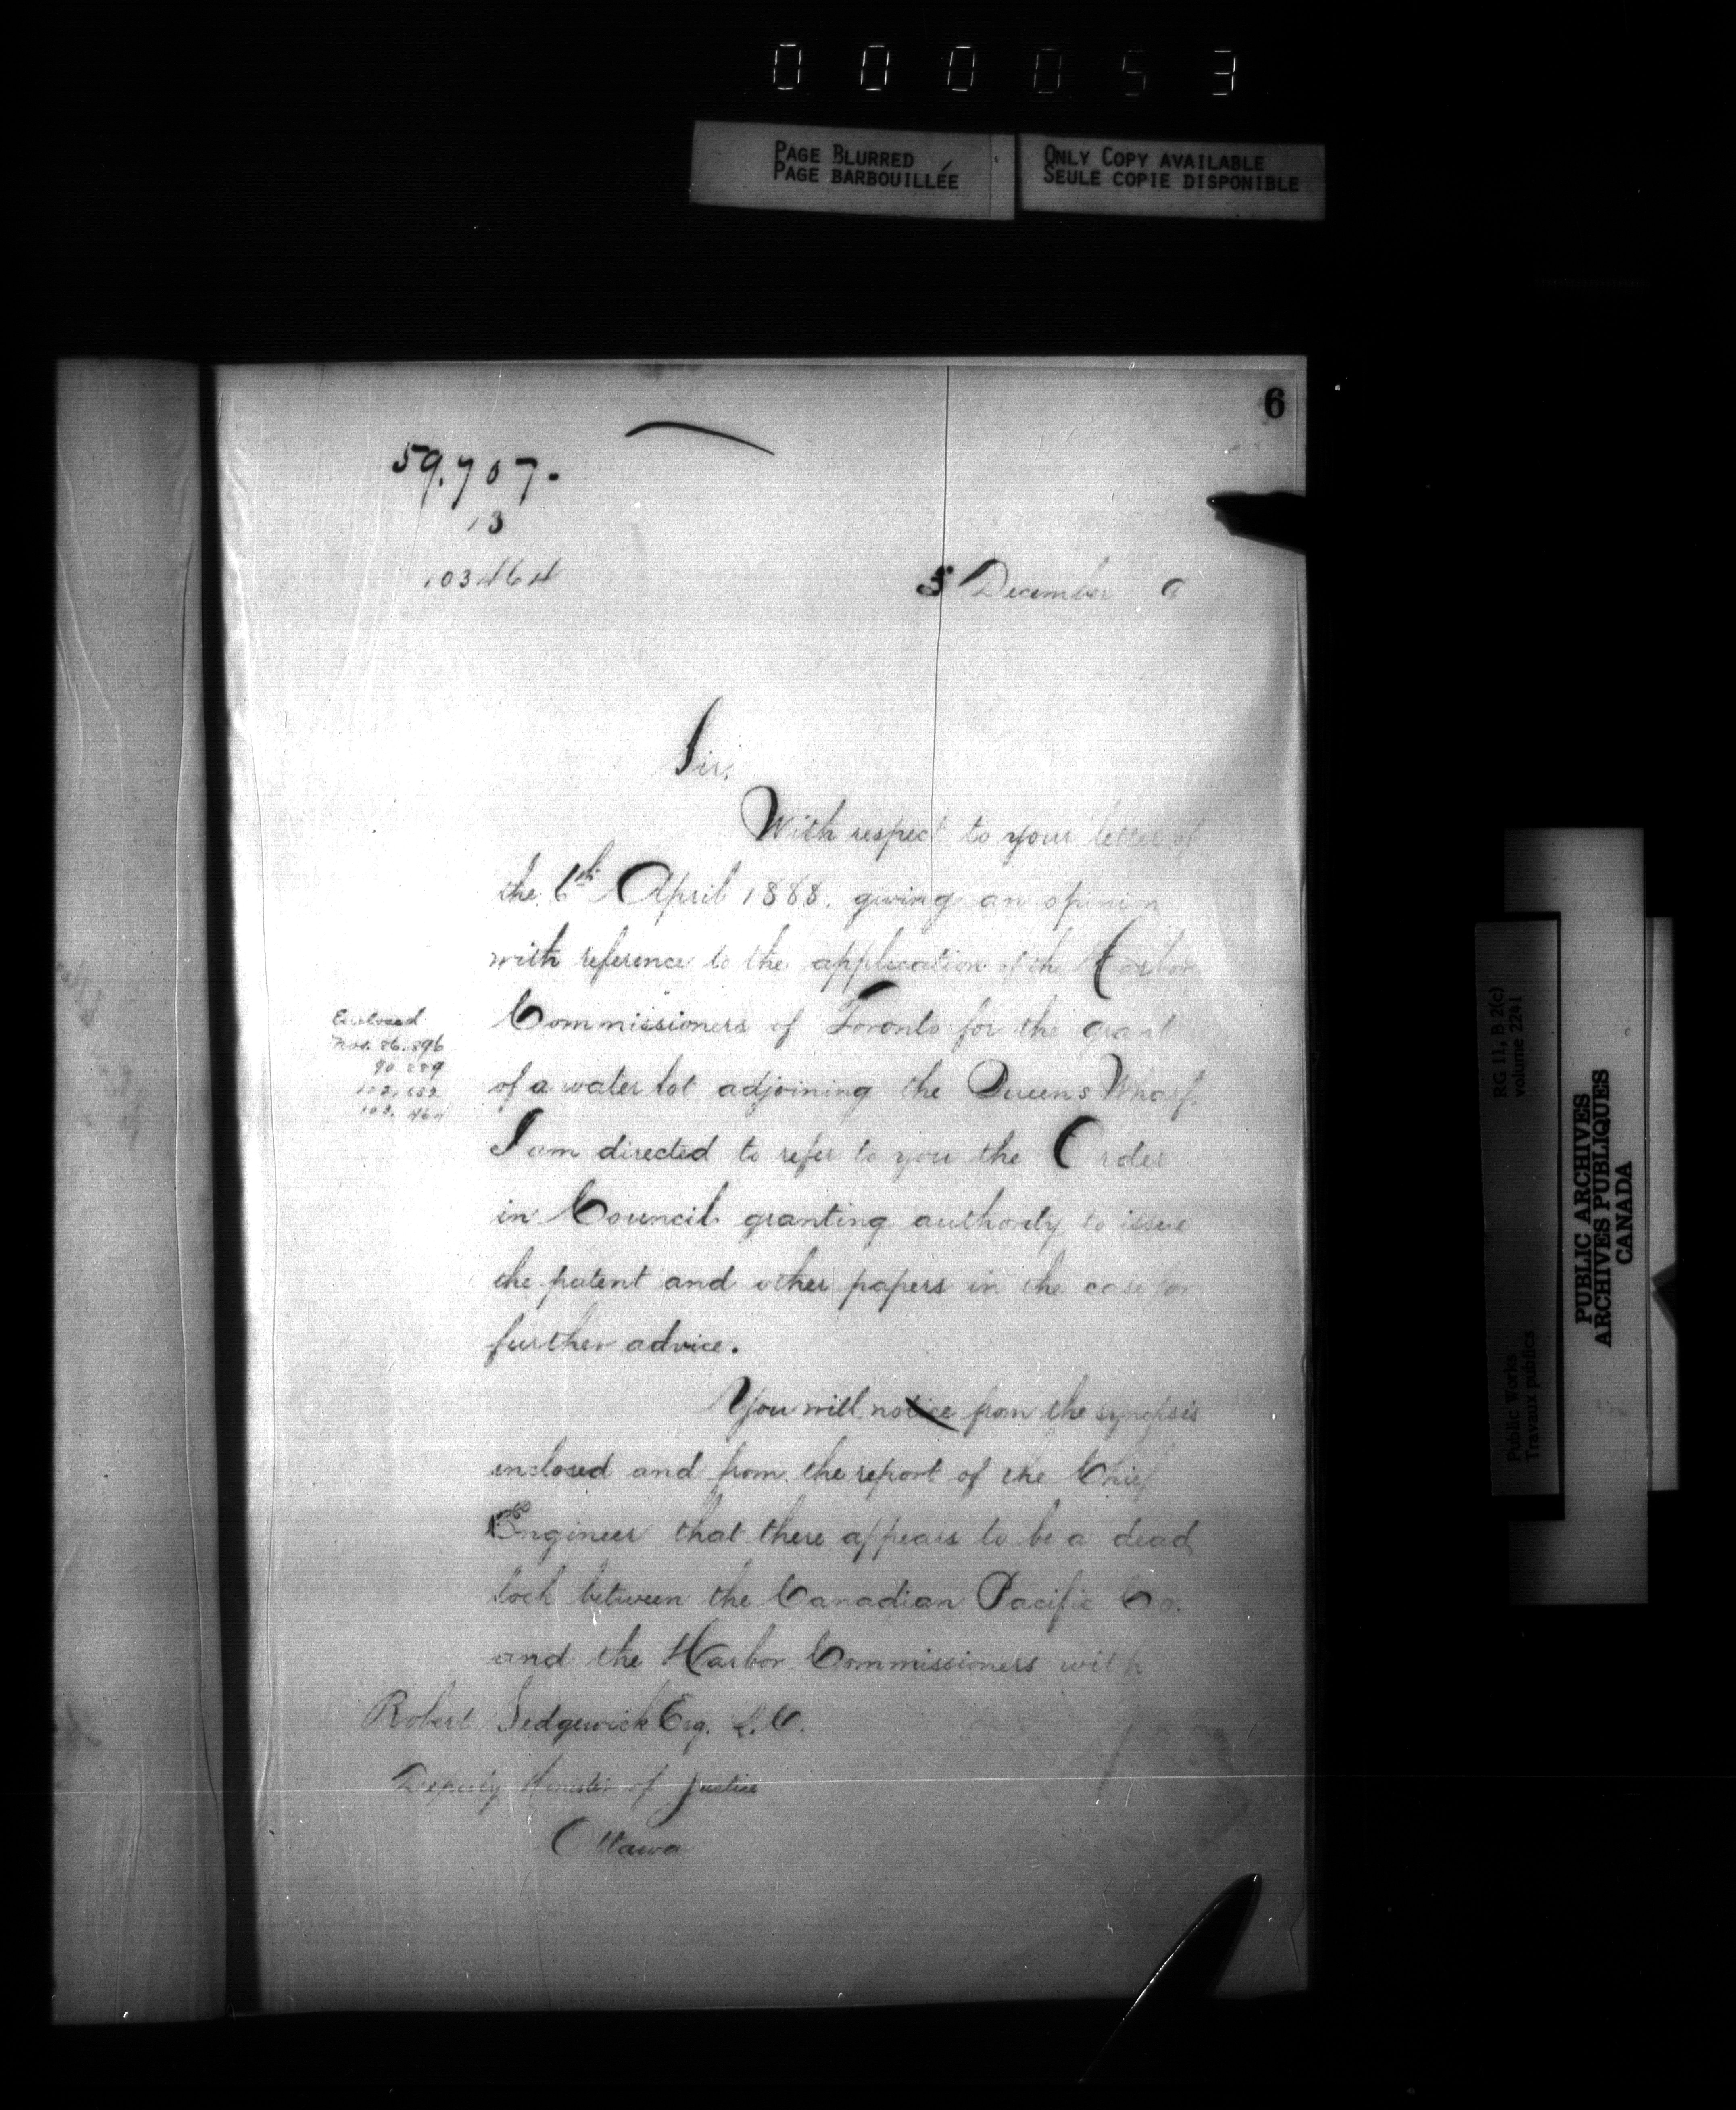 000053
PAGE BLURRED
PAGE BARBOUILLÉE
ONLY COPY AVAILABLE
SEULE COPIE DISPONIBLE
6
59.707-
13
103464
5 December 9
Sir,
With respect to your letter of
the 6th April 1888. giving an opinion
with reference to the application of the Harbor
Commissioners of Toronto for the grant
of a water lot adjoining the Queens Wharf
I am directed to refer to you the Order
in Council granting authority to issue
the patent and other papers in the case for
further advice.
You will notice from the synopsis
enclosed and from the report of the Chief
Engineer that there appears to be a dead
lock between the Canadian Pacific Co.
and the Harbor Commissioners with
Enclosed
Nos. 86.896
103.464
Robert Sedgewick Esq. Q.C.
Deputy Minister of Justice
Ottawa
RG 11, B 2(c)
volume 2241
Public Works
Travaux publics
PUBLIC ARCHIVES
ARCHIVES PUBLIQUES
CANADA